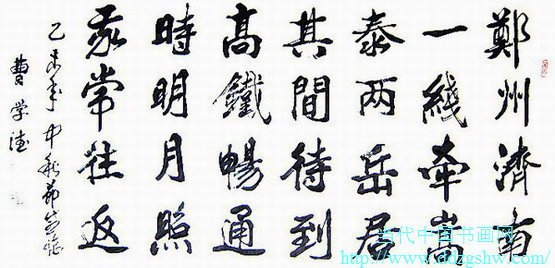 鄭州濟南
一綫牽嵩
泰两岳居
其間待到
高鐵暢通
時明月照
我常往返
乙未年中秋節
曹学
当代中国书画网
http://www.ddzgshw.com/